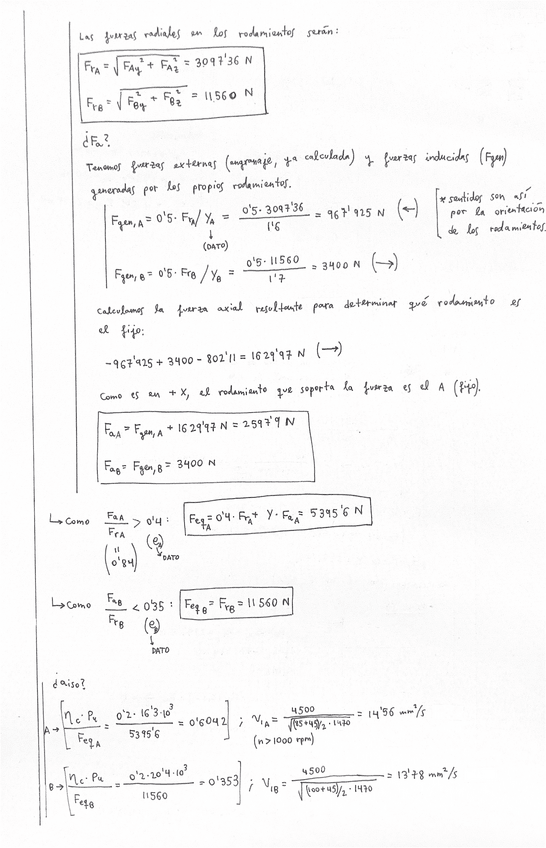 Las fuerzas radiales en los rodamientos serán:
FrA = √(FAy² + FAz²) = 3097'36 N
FrB = √(FBy² + FBz²) = 11560 N
¿Fa?
Tenemos fuerzas externas (engranaje, ya calculada) y fuerzas inducidas (Fgen)
generadas por los propios rodamientos.
Fgen,A = 0'5 · FrA / YA = 0'5 · 3097'36 / 1'6 = 967'925 N (←)
↓
(DATO)
* sentidos son así
por la orientación
de los rodamientos.
Fgen,B = 0'5 · FrB / YB = 0'5 · 11560 / 1'7 = 3400 N (→)
Calculamos la fuerza axial resultante para determinar qué rodamiento es
el fijo:
-967'925 + 3400 - 802'11 = 1629'97 N (→)
Como es en + X, el rodamiento que soporta la fuerza es el A (fijo).
FaA = Fgen,A + 1629'97 N = 2597'9 N
FaB = Fgen,B = 3400 N
↳ Como FaA / FrA > 0'4 : FeqA = 0'4 · FrA + Y · FaA = 5395'6 N
(eA)
↓
DATO
(= 0'84)
↳ Como FaB / FrB < 0'35 : FeqB = FrB = 11560 N
(eB)
↓
DATO
¿aiso?
A → [ηc · Pu / FeqA = 0'2 · 16'3 · 10³ / 5395'6 = 0'6042] ; ν1A = 4500 / √((85+45)/2 · 1470) = 14'56 mm²/s
(n > 1000 rpm)
B → [ηc · Pu / FeqB = 0'2 · 20'4 · 10³ / 11560 = 0'353] ; ν1B = 4500 / √((100+45)/2 · 1470) = 13'78 mm²/s